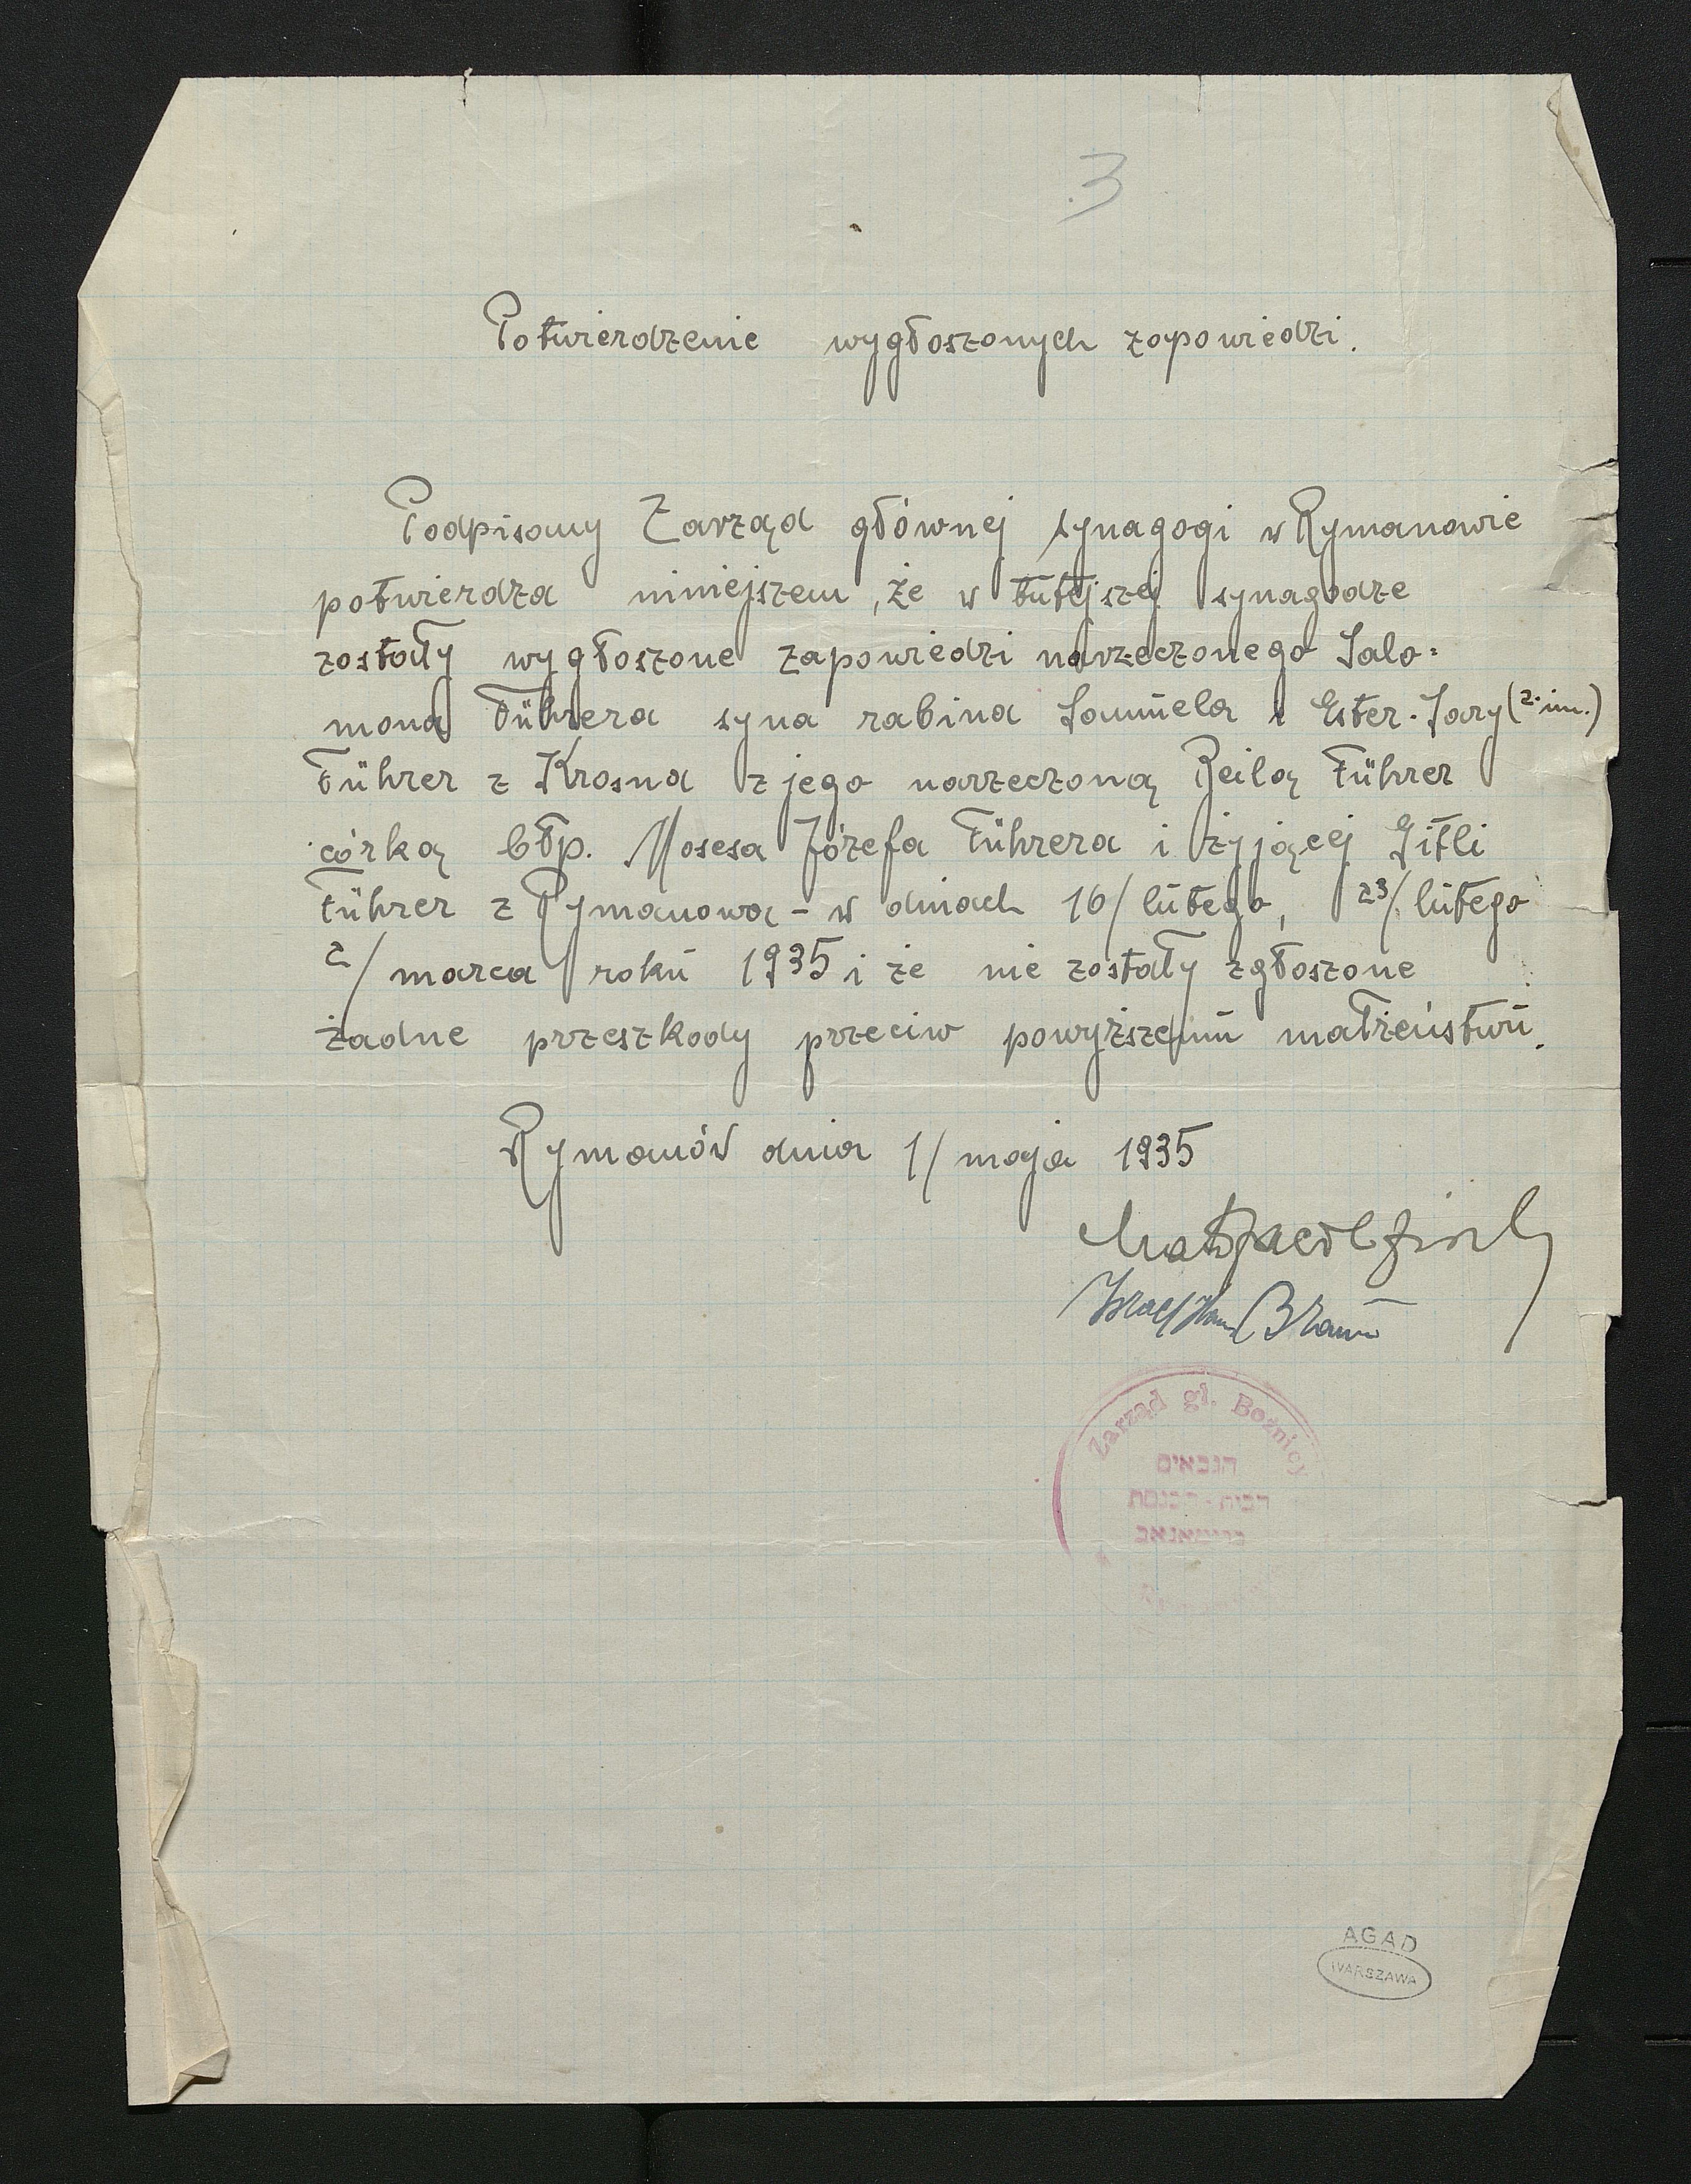 3
Potwierdzenie wygłoszonych zapowiedzi.
Podpisany Zarząd głównej synagogi w Rymanowie
potwierdza niniejszem, że w tutejszej synagodze
zostały wygłoszone zapowiedzi narzeczonego Salo=
mona Führera syna rabina Samuela i Ester-Sary (2 im.)
Führer z Krosna z jego narzeczoną Beilą Führer
córką błp. Mosesa Józefa Führera i żyjącej Gitli
Führer z Rymanowa - w dniach 16/ lutego, 23/ lutego
2/ marca roku 1935 i że nie zostały zgłoszone
żadne przeszkody przeciw powyższemu małżeństwu.
Rymanów dnia 1/ maja 1935
Braun
Zarząd gł. Bożnicy
הגבאים
דבית-הכנסת
AGAD
WARSZAWA